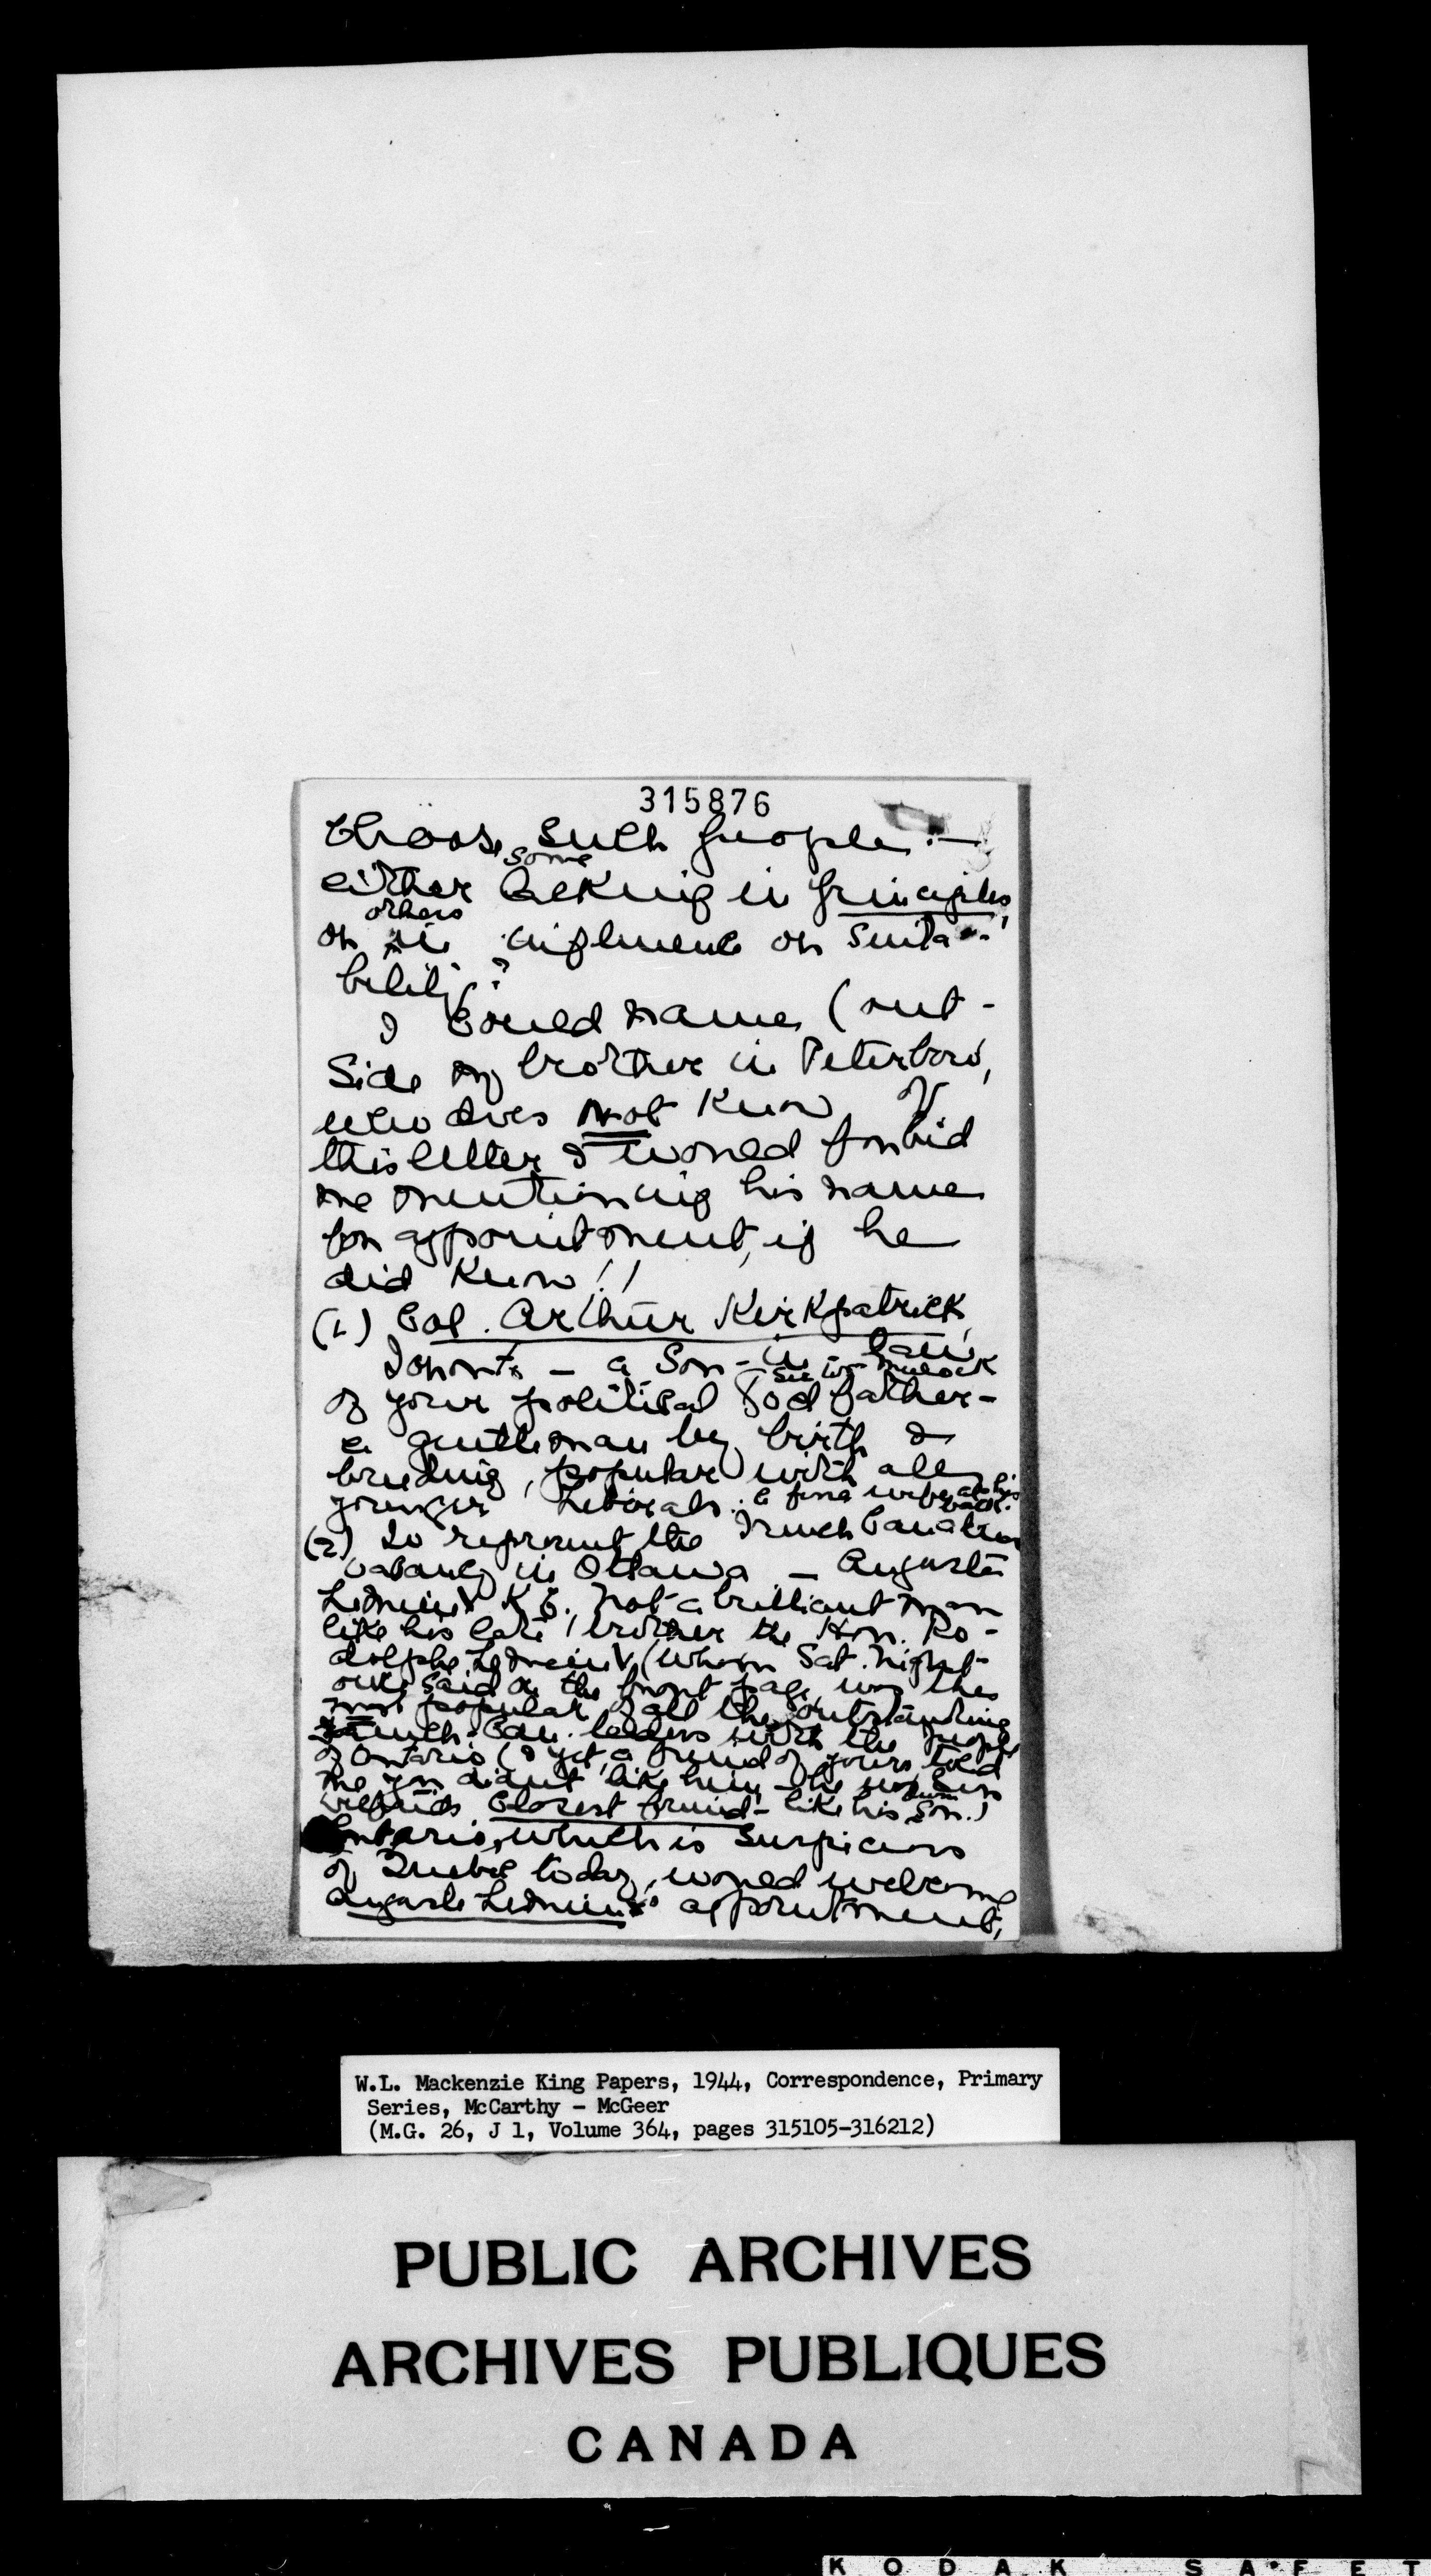 315876
choose such people :—
either some lacking in principles,
or others in influence or suita-
bility?
I could name (out-
side my brother in Peterboro,
who does not know of
this letter & would forbid
me mentioning his name
for appointment, if he
did know!!
(1) Col. Arthur Kirkpatrick,
Toronto — a son-in-law
Sir Wm Mulock
of your political God father —
a gentleman by birth &
breeding, popular with all
younger Liberals. & fine wife at his back.
(2) To represent the French Canadian
vacancy in Ottawa — Auguste
Lemieux K.C. Not a brilliant man
like his late brother the Hon. Ro-
dolphe Lemieux (whom Sat. Night
once said on the front page was the
most popular of all the outstanding
French-Can. leaders with the people
of Ontario (& yet, a friend of yours told
me you didn't like him — he was Sir
Wilfrid's closest friend — like his own son.)
Ontario, which is suspicious
of Quebec today, would welcome
Auguste Lemieux's appointment,
W.L. Mackenzie King Papers, 1944, Correspondence, Primary
Series, McCarthy - McGeer
(M.G. 26, J 1, Volume 364, pages 315105-316212)
PUBLIC ARCHIVES
ARCHIVES PUBLIQUES
CANADA
KODAK SAFET